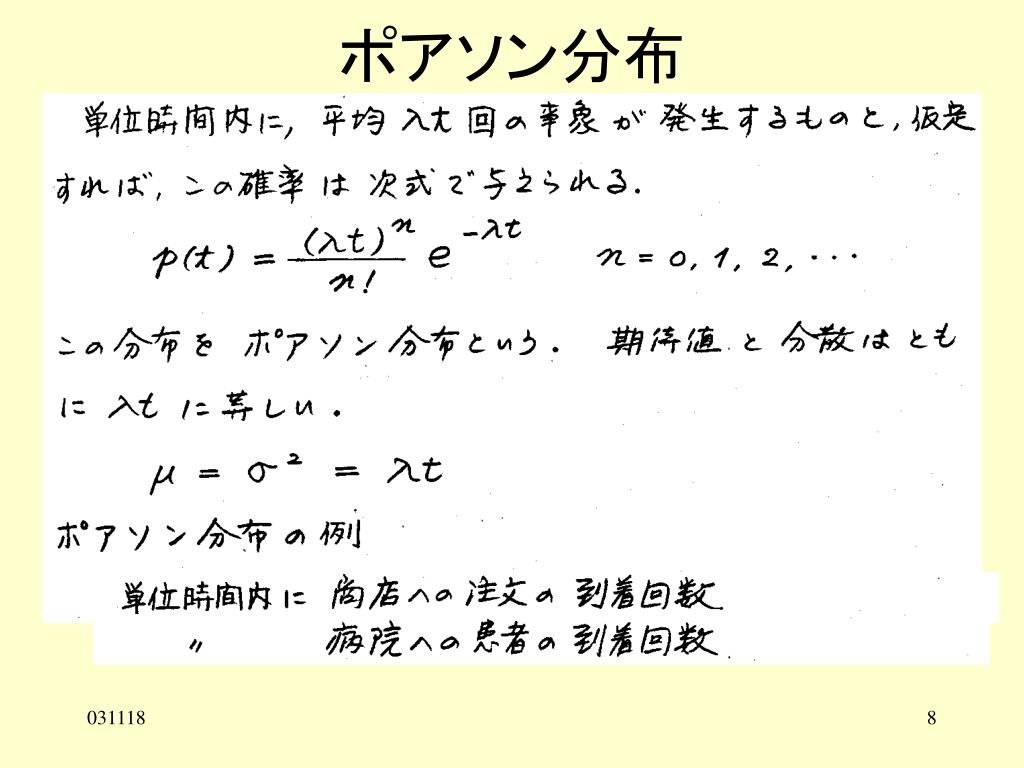 ポアソン分布
単位時間内に, 平均 λt 回の事象が発生するものと, 仮定
すれば, この確率は次式で与えられる.
p(t) = (λt)^n / n! e^{-λt}  n = 0, 1, 2, ...
この分布を ポアソン分布という. 期待値と分散はとも
に λt に等しい.
μ = σ² = λt
ポアソン分布の例
単位時間内に 商店への注文の到着回数
〃 病院への患者の到着回数
031118 8